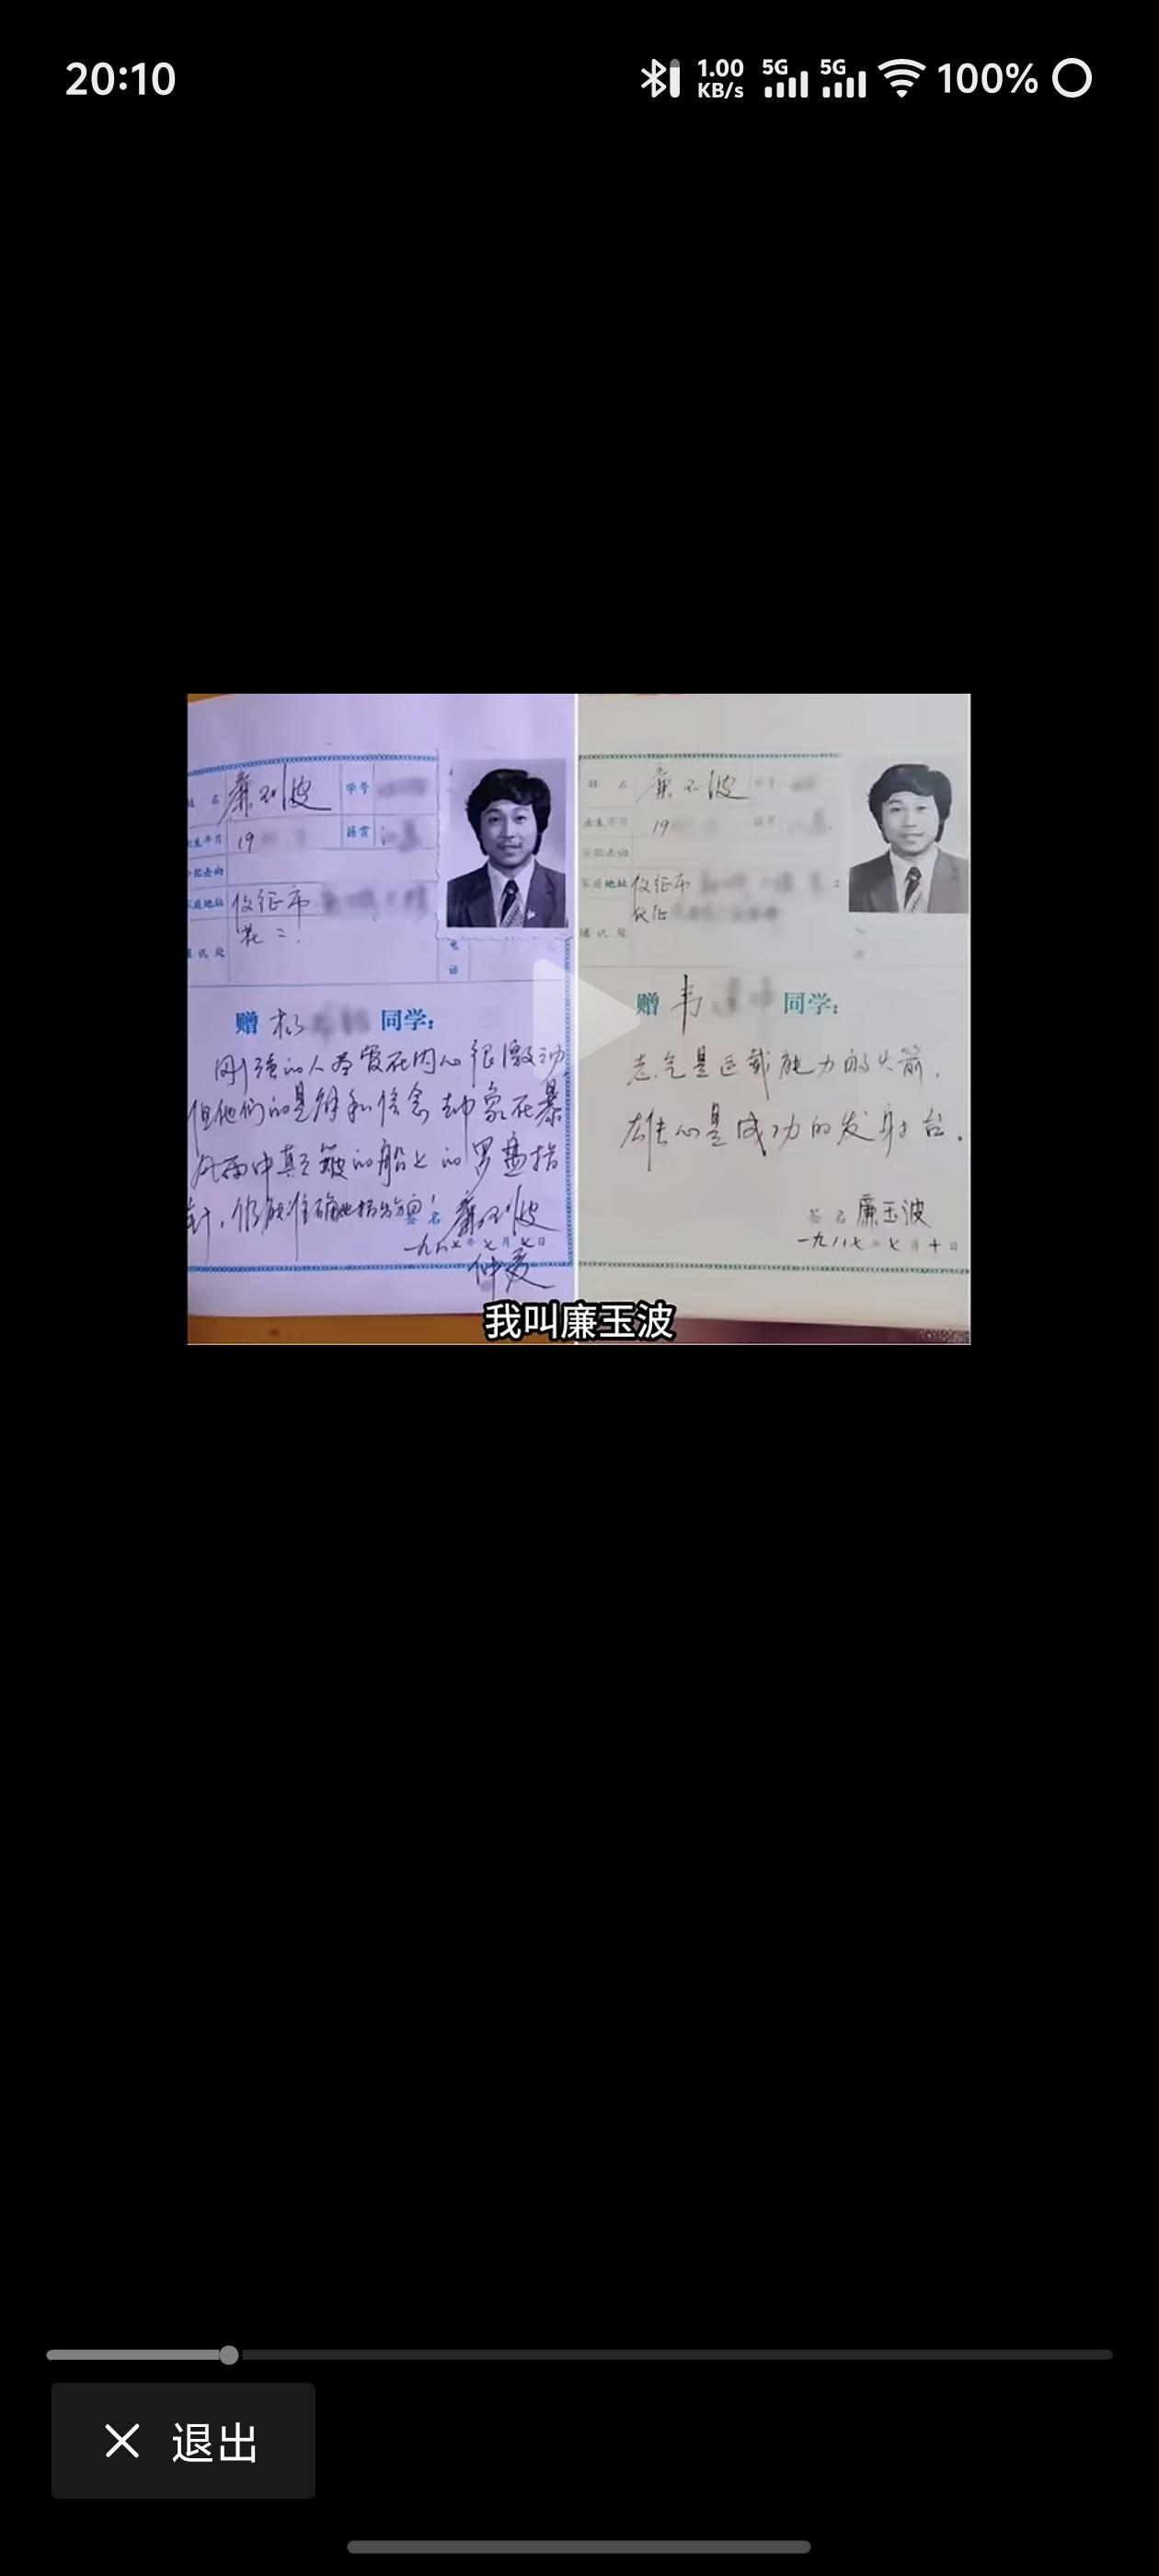 20:10
1.00
KB/s
5G
5G
100%
姓 名 廉玉波 学号
出生年月 19 籍贯
分配去向
家庭地址 仪征市
通讯处
电
话
赠 杨 同学:
刚强的人尽管在内心很激动
但他们的见解和信念却象在暴
风雨中颠簸的船上的罗盘指
针,仍能准确地指出方向!
签名 廉玉波
一九八七年七月七日
姓 名 廉玉波 学号
出生年月 19
分配去向
家庭地址 仪征市
仪征
通讯处
赠 韦 同学:
志气是运载能力的火箭,
雄心是成功的发射台.
签名 廉玉波
一九八七年七月十日
我叫廉玉波
退出